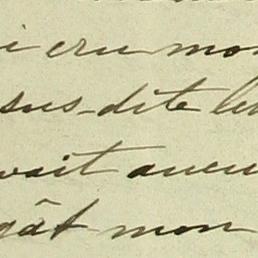 i cru mon
sus-dite le
vait aucu
gât mon